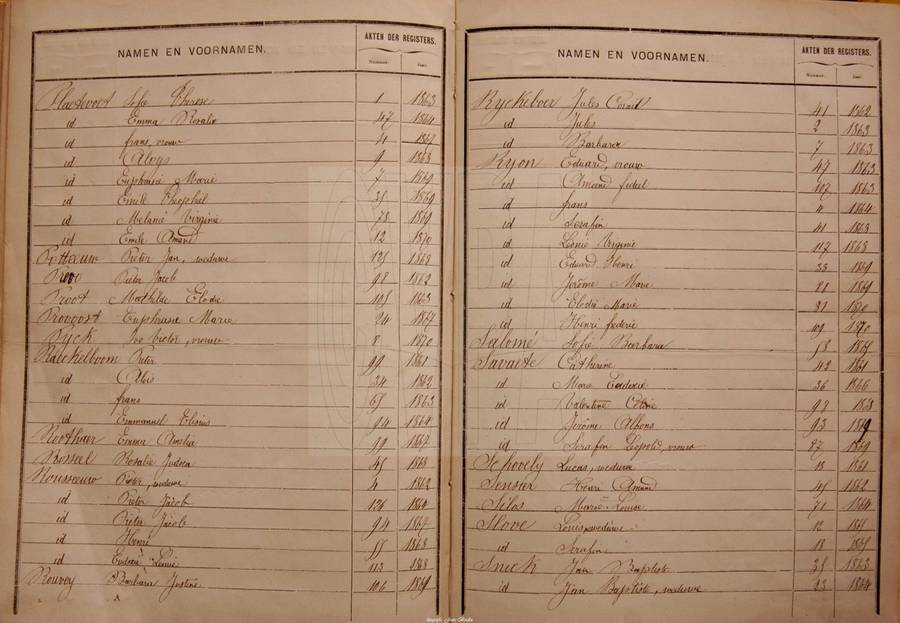 NAMEN EN VOORNAMEN. AKTEN DER REGISTERS.
Nummer. Jaar.
Plaetvoet Sofie Therese 1 1863
id Emma Rosalie 47 1864
id frans, vrouw 41 1867
id Aloys 9 1868
id Euphrasie Marie 7 1869
id Emile Theophiel 35 1869
id Melanie Virginie 78 1869
id Emile Amand 12 1870
Potteeuw Pieter Jan, weduwe 125 1863
Pieter Jacob 98 1862
Proot Mathilde Elodie 105 1863
Provoost Euphrasie Marie 24 1867
Pyck Ivo Victor, vrouw 8 1870
Raeckelboom Pieter 99 1861
id Aloïs 34 1862
id frans 65 1863
id Emmanuel 94 1864
Emma Amelia 99 1867
Rosseel Rosalie Judoca 45 1868
Rousseeuw Pieter, weduwe 4 1862
id Pieter Jacob 126 1864
id Pieter Jacob 94 1867
id Henri 55 1868
id Leonie 113 1868
Rouvoy Barbara Justine 106 1869
NAMEN EN VOORNAMEN. AKTEN DER REGISTERS.
Nummer. Jaar.
Ryckeboer Jules Cornil 41 1862
id Jules 2 1863
id Barbara 7 1863
Ryon Eduard, vrouw 47 1863
id Amand fidel 107 1863
id frans 4 1864
id Serafin 41 1863
id Leonie Virginie 117 1868
id Eduard Henri 33 1869
id Jerôme Marie 81 1869
id Elodie Marie 31 1870
id Henri frederic 109 1870
Salomé Sofie Barbara 58
Savaete Catharine 42 1861
id Marie 36 1866
id Valentine Celine 98 1868
id Jerôme Alfons 93 1869
id Serafin Leopold, vrouw 87 1869
Schovely Lucas, weduwe 18 1861
Senster Henri Amand 45 1862
Silos Marie Louise 71 1864
Slove Louis, weduwe 12
id Serafin 18
Snick Jan Baptiste 35 1863
id Jan Baptiste, weduwe 23 1864